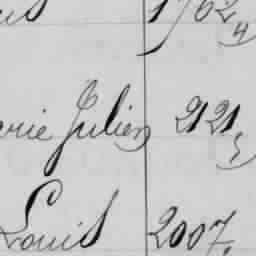 1762 4
rie Julien 2121 5
Louis 2007